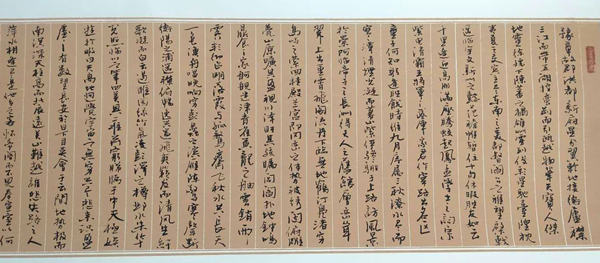 豫章故郡洪都新府星分翼軫地接衡廬襟
三江而帶五湖控蠻荊而引甌越物華天寶人傑
地靈徐孺下陳蕃之榻雄州霧列俊采星馳臺隍枕
夷夏之交賓主盡東南之美都督閻公之雅望棨戟
遙臨宇文新州之懿範襜帷暫駐十旬休暇勝友如云
千里逢迎高朋滿座騰蛟起鳳孟學士之詞宗
紫電清霜王將軍之武庫家君作宰路出名區
童子何知躬逢勝餞時維九月序屬三秋潦水盡而
寒潭清煙光凝而暮山紫儼驂騑於上路訪風景
於崇阿臨帝子之長洲得天人之舊館層巒聳
翠上出重霄飛閣流丹下臨無地鶴汀鳧渚窮
島嶼之縈迴桂殿蘭宮即岡巒之體勢披繡闥俯雕
甍山原曠其盈視川澤紆其駭矚閭閻撲地鐘鳴
鼎食之家舸艦迷津青雀黃龍之舳雲銷雨
霽彩徹區明落霞與孤鶩齊飛秋水共長天
一色漁舟唱晚響窮彭蠡之濱雁陣驚寒聲斷
衡陽之浦遙襟俯暢逸興遄飛爽籟發而清風生纖
歌凝而白雲遏睢園綠竹氣凌彭澤之樽鄴水朱華
光照臨川之筆四美具二難並窮睇眄於中天極娛
遊於暇日天高地迥覺宇宙之無窮興盡悲來識盈
虛之有數望長安於日下目吳會於雲間地勢極而
南溟深天柱高而北辰遠關山難越誰悲失路之人
萍水相逢盡是他鄉之客懷帝閽而不見奉宣室以何